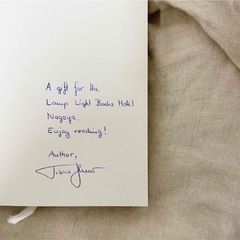 A gift for the
Lamps Light Books Hotel
Nagoya.
Enjoy reading!
Author,